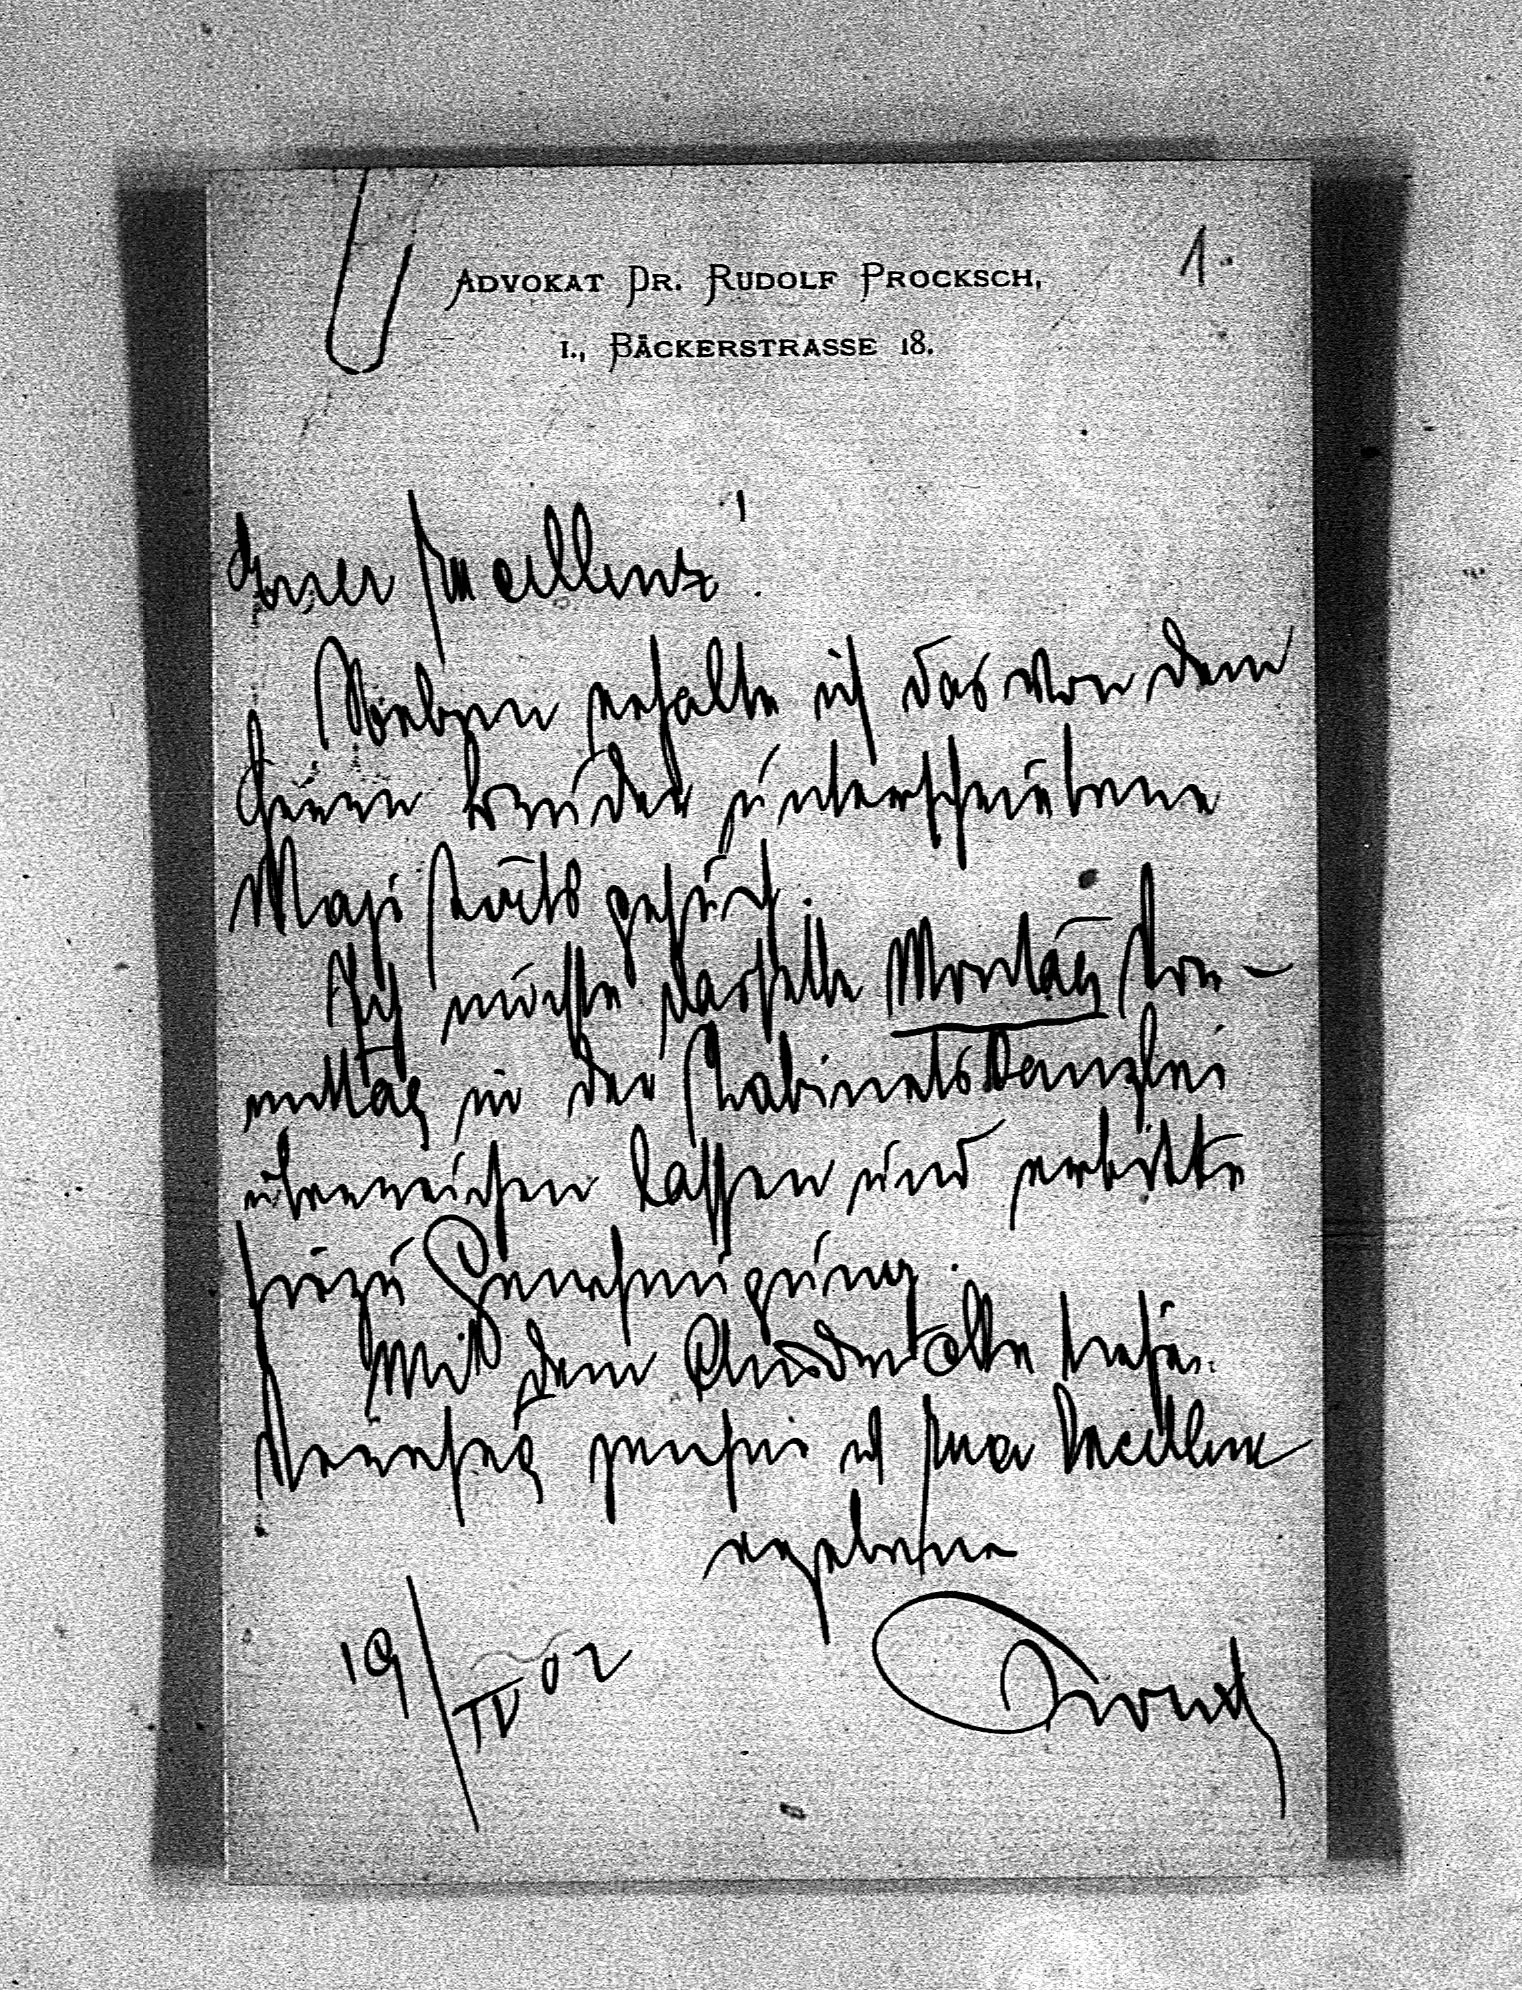 Advokat Dr. Rudolf Procksch,
I., Bäckerstrasse 18.
1.
Euer Excellenz!
Soeben erhalte ich das von dem
Herrn Bruder unterschriebene
Majestätsgesuch.
Ich möchte dasselbe Montag Vor-
mittag in der Kabinetskanzlei
überreichen lassen und erbitte
hiezu Genehmigung.
Mit dem Ausdrucke
Verehrung zeichne ich Euer Excellenz
ergebenster
19/IV 02